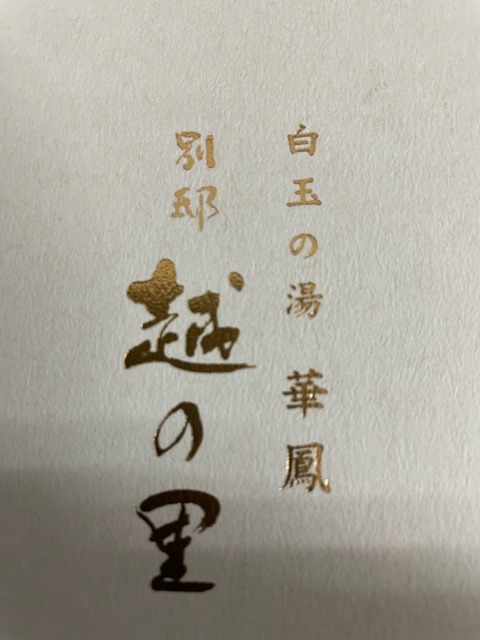 白玉の湯 華鳳
別邸
越の里